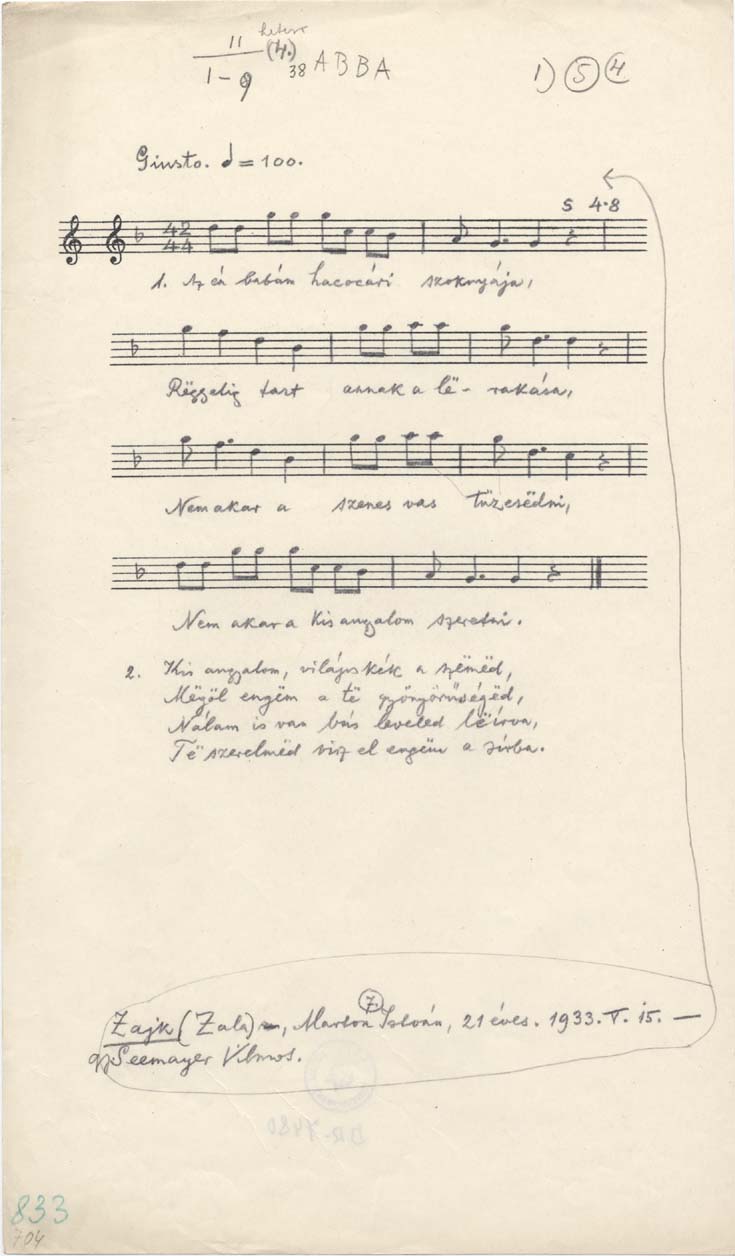 11 (4.)
1-9 38 ABBA 1) 5 4
Giusto. = 100.
5 4.8
42
44
1. Az én babám hacocári szoknyája,
Rëggelig tart annak a lë- rakása,
Nem akar a szenes vas tüzesëdni,
Nem akar a kis angyalom szeretni.
2. Kis angyalom, világoskék a szëmëd,
Mëgöl engëm a të gyönyörűségëd,
Nálam is van bús leveled lëírva,
Të szerelmëd visz el engëm a sírba.
7
Zajk (Zala), Marton István, 21 éves. 1933. V. 15. —
gy Seemayer Vilmos.
833
704